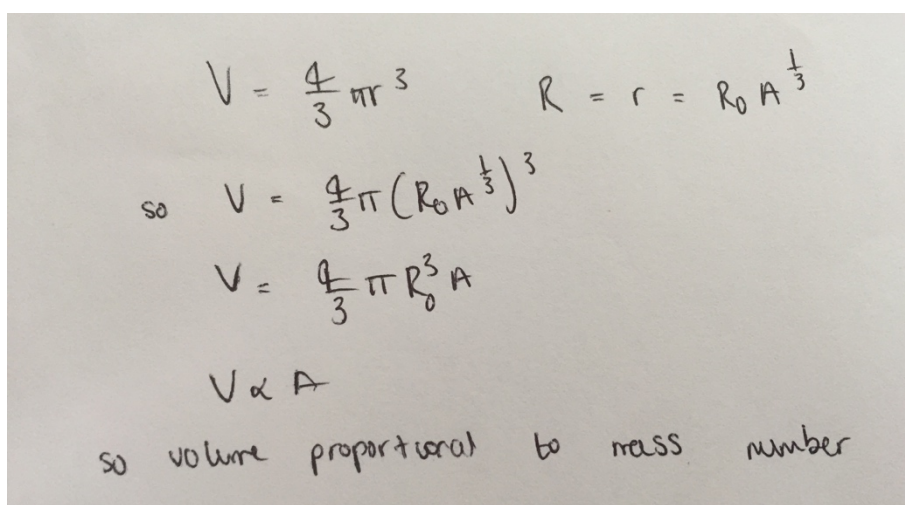 V = 4/3 πr³ R = r = R₀ A^1/3
so V = 4/3 π (R₀ A^1/3)³
V = 4/3 π R₀³ A
V ∝ A
so volume proportional to mass number